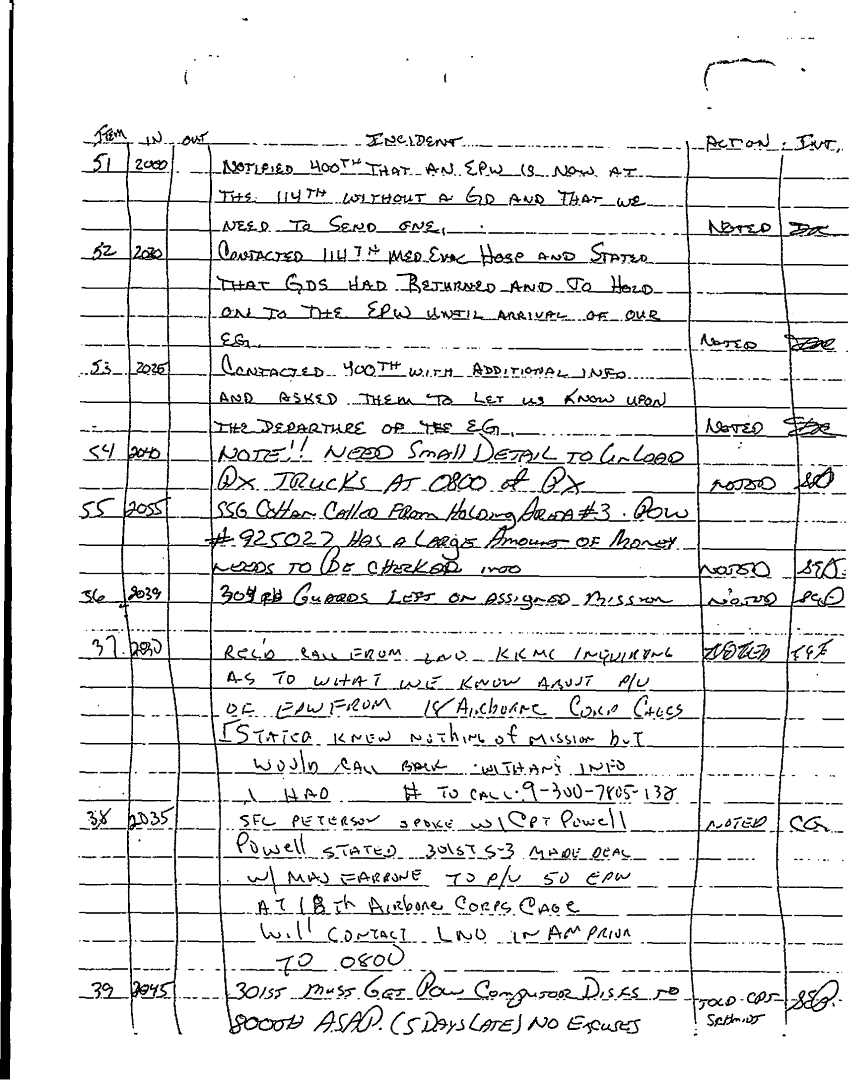 ITEM IN OUT INCIDENT ACTION INT.
51 2000 NOTIFIED 400TH THAT AN EPW IS NOW AT
THE 114TH WITHOUT A GD AND THAT WE
NEED TO SEND ONE. NOTED
52 2020 CONTACTED 114TH MED EVAC HOSP AND STATED
THAT GDS HAD RETURNED AND TO HOLD
ON TO THE EPW UNTIL ARRIVAL OF OUR
EG. NOTED
53 2025 CONTACTED 400TH WITH ADDITIONAL INFO
AND ASKED THEM TO LET US KNOW UPON
THE DEPARTURE OF THE EG. NOTED
54 2040 NOTE!! NEED SMALL DETAIL TO UNLOAD
PX TRUCKS AT 0800 at PX NOTED
55 2055 SSG Called From Holding Area #3. POW
# 925027 HAS A LARGE Amount OF Money
NEEDS TO BE CHECKED INTO NOTED
56 2039 304th GUARDS LEFT ON ASSIGNED MISSION NOTED
37. 2030 REC'D CALL FROM LNO KKMC INQUIRING NOTED
AS TO WHAT WE KNOW ABOUT P/U
OF EPW FROM 18 Airborne Corp Cages
I STATED KNEW NOTHING of MISSION but
WOULD CALL BACK WITH ANY INFO
I HAD # TO CALL 9-300-7805-138
38 2035 SFC PETERSON SPOKE W/ CPT Powell NOTED CG
Powell STATED 301ST S-3 MADE DEAL
W/ MAJ FARRONE TO P/U 50 EPW
AT 18th Airborne CORPS CAGE
Will CONTACT LNO IN AM PRIOR
TO 0800
39 2045 301ST MUST GET POW COMPUTOR DISKS TO TOLD CPT
800TH ASAP. (5 DAYS LATE) NO EXCUSES Schmidt